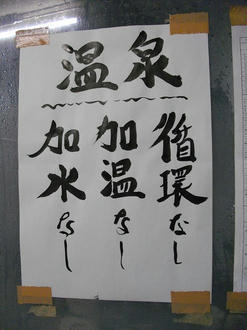 温泉
循環なし
加温なし
加水なし